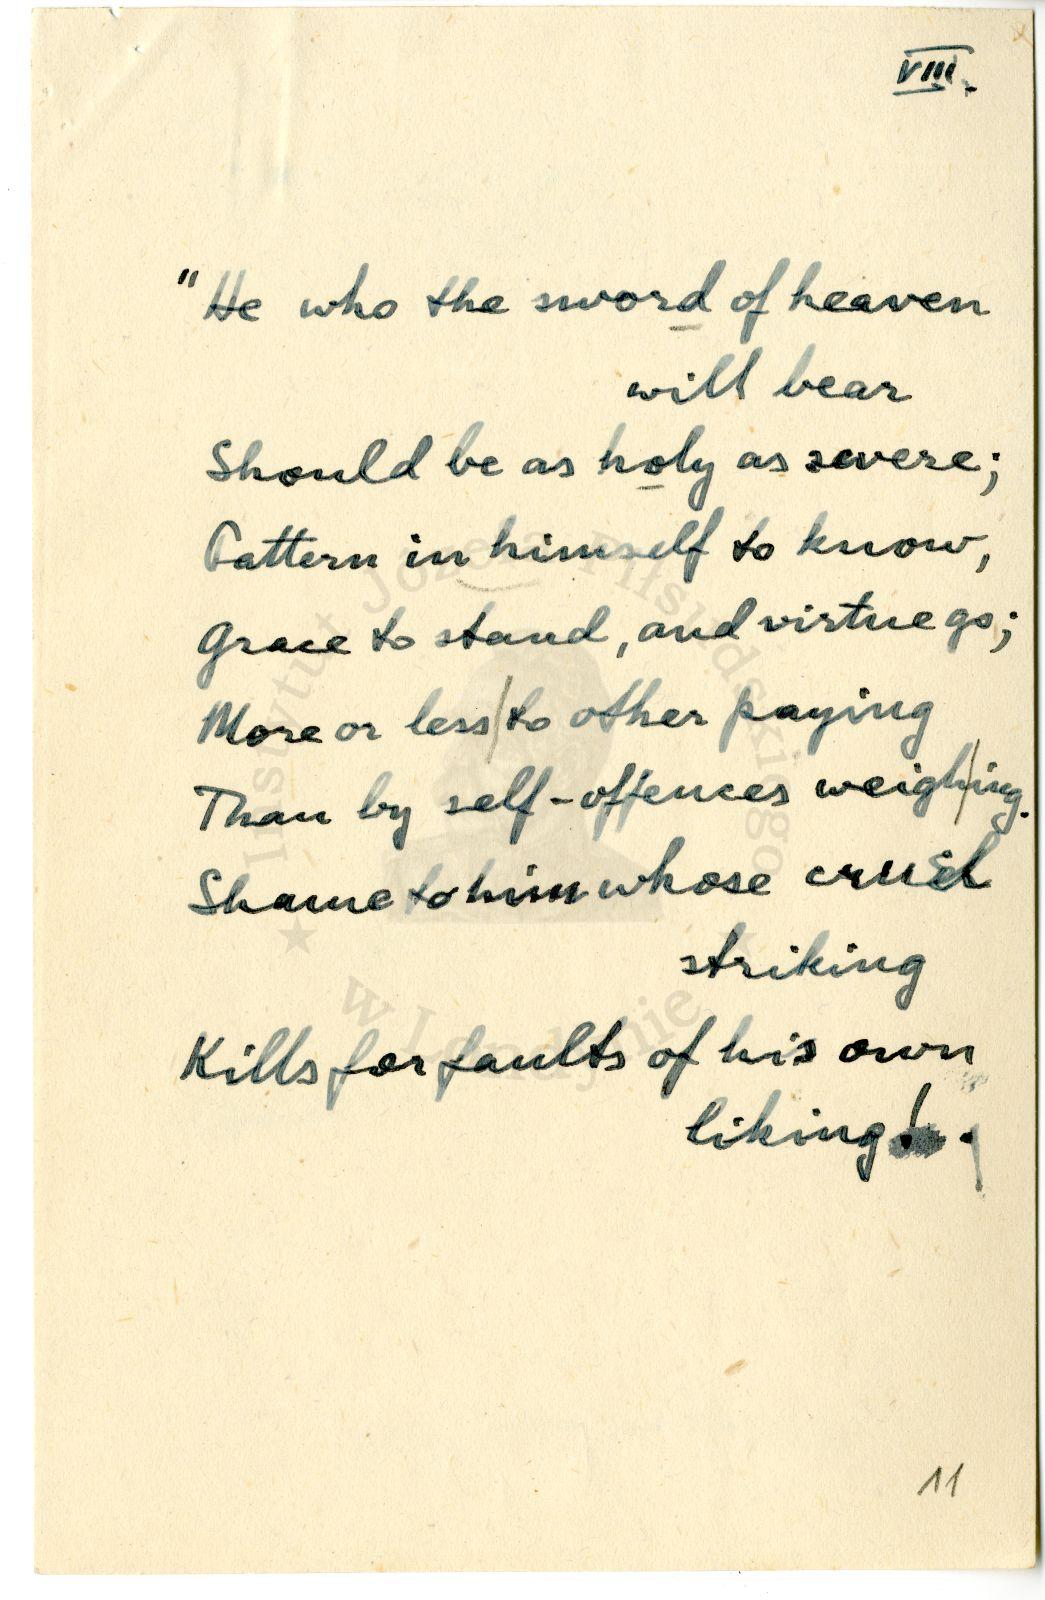 VIII.
"He who the sword of heaven
will bear
Should be as holy as severe;
Pattern in himself to know,
Grace to stand, and virtue go;
More or less/to other paying
Than by self-offences weigh/ing.
Shame to him whose cruel
striking
Kills for faults of his own
liking!.
11
Instytut Józefa Piłsudskiego
w Londynie